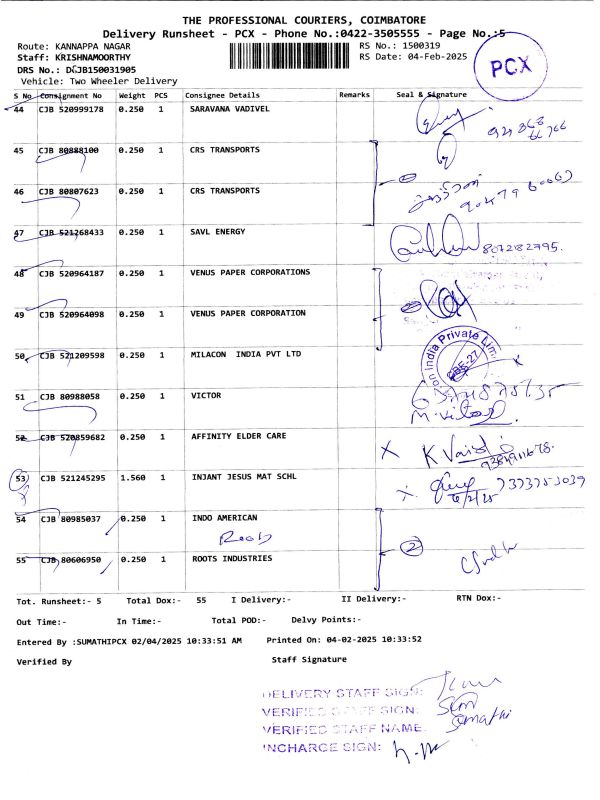 THE PROFESSIONAL COURIERS, COIMBATORE
Delivery Runsheet - PCX - Phone No.:0422-3505555 - Page No.:5
Route: KANNAPPA NAGAR
RS No.: 1500319
Staff: KRISHNAMOORTHY
RS Date: 04-Feb-2025
PCX
DRS No.: JB150031905
Vehicle: Two Wheeler Delivery
S No Consignment No Weight PCS Consignee Details Remarks Seal & Signature
44 CJB 520999178 0.250 1 SARAVANA VADIVEL
45 CJB 80888100 0.250 1 CRS TRANSPORTS
46 CJB 80807623 0.250 1 CRS TRANSPORTS
47 CJB 521268433 0.250 1 SAVL ENERGY
8072182795.
48 CJB 520964187 0.250 1 VENUS PAPER CORPORATIONS
49 CJB 520964098 0.250 1 VENUS PAPER CORPORATION
50 CJB 521209598 0.250 1 MILACON INDIA PVT LTD
on India Private Lim
CBE-27
51 CJB 80988058 0.250 1 VICTOR
M. Victor
52 CJB 520859682 0.250 1 AFFINITY ELDER CARE
53 CJB 521245295 1.560 1 INJANT JESUS MAT SCHL
7373753039
6/2/25
54 CJB 80985037 0.250 1 INDO AMERICAN
Roots
2
55 CJB 80606950 0.250 1 ROOTS INDUSTRIES
Tot. Runsheet:- 5 Total Dox:- 55 I Delivery:- II Delivery:- RTN Dox:-
Out Time:- In Time:- Total POD:- Delvy Points:-
Entered By :SUMATHIPCX 02/04/2025 10:33:51 AM Printed On: 04-02-2025 10:33:52
Verified By Staff Signature
DELIVERY STAFF SIGN:
VERIFIED STAFF SIGN:
VERIFIED STAFF NAME: Sumathi
INCHARGE SIGN: